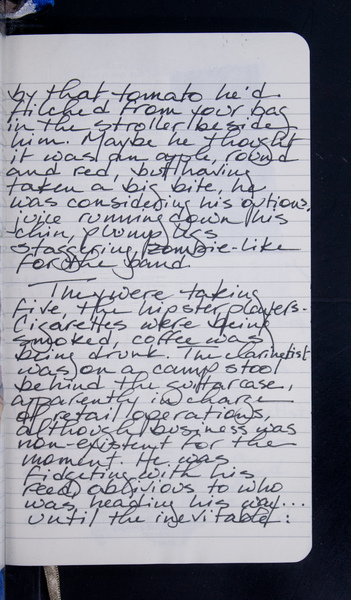 by that tomato he'd
filched from your bag
in the stroller beside
him. Maybe he thought
it was an apple, round
and red, but having
taken a big bite, he
was considering his options,
juice running down his
chin, plump legs
staggering, zombie-like
for the band.
They were taking
five, the hipster players.
Cigarettes were being
smoked, coffee was
being drunk. The clarinetist
was on a camp stool
behind the guitarcase,
apparently in charge
of retail operations,
although business was
non-existent for the
moment. He was
fidgeting with his
reed, oblivious to who
was heading his way...
until the inevitable: